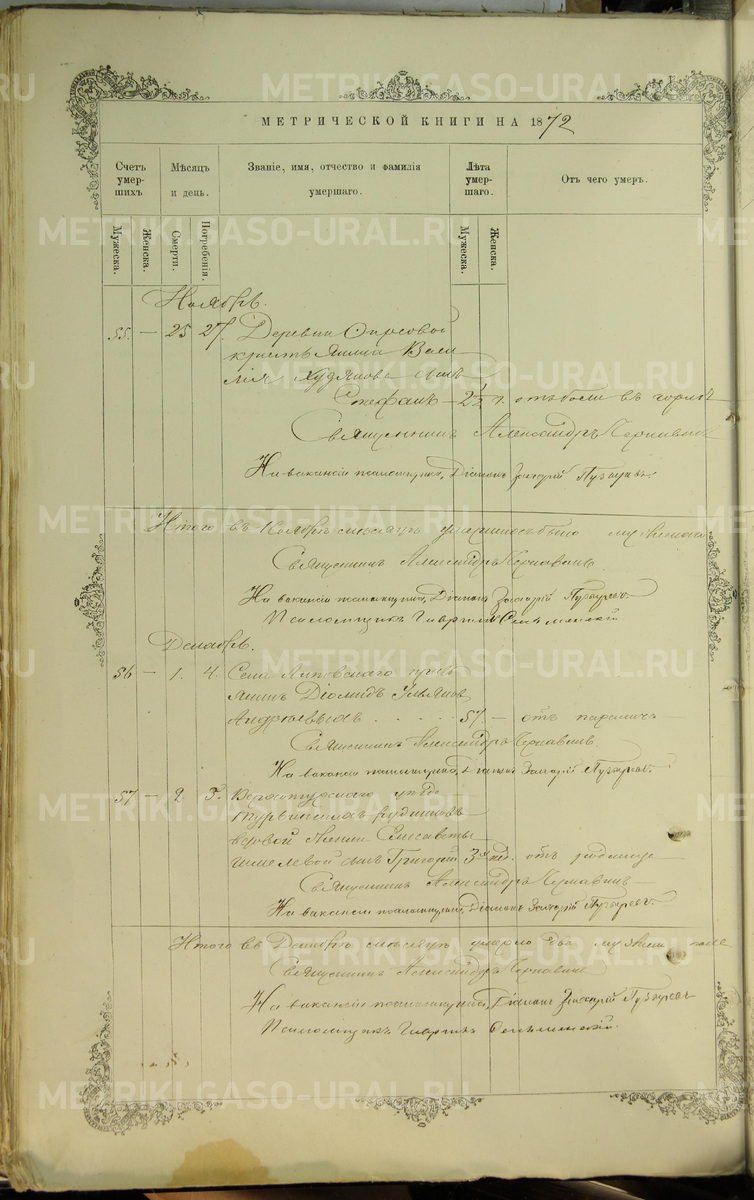 МЕТРИЧЕСКОЙ КНИГИ НА 1872
Счетъ умер- шихъ
Мѣсяцъ и день.
Званіе, имя, отчество и фамилія умершаго.
Лѣта умер- шаго.
Отъ чего умеръ.
Мужеска. Женска. Смерти. Погребенія. Мужеска. Женска.
Ноябрь.
55. — 25 27. Деревни
крестьянина Васи
лія Худякова сынъ
Стефанъ — 2½ г. отъ боли въ горлѣ
Священникъ Александръ Чернавинъ
На вакансіи псаломщика, Діаконъ Захарій Пузыревъ
Итого въ Ноябрѣ мѣсяцѣ
Священникъ Александръ Чернавинъ
На вакансіи псаломщика, Діаконъ Захарій Пузыревъ
Псаломщикъ Гавріилъ
Декабрь.
56 — 1. 4. Села Липовскаго кресть
янинъ Діомидъ Ульяновъ
57 — отъ паралича
Священникъ Александръ Чернавинъ
На вакансіи псаломщика, Діаконъ Захарій Пузыревъ.
57 — 2. 3. Верхотурскаго уѣзда
Турьинскихъ рудниковъ
вдовой жены Елисаветы
Шмелевой сынъ Григорій 3 нед. отъ родимца
Священникъ Александръ Чернавинъ
На вакансіи псаломщика, Діаконъ Захарій Пузыревъ.
Итого въ Декабрѣ мѣсяцѣ умерло два мужеска пола
Священникъ Александръ Чернавинъ
На вакансіи псаломщика, Діаконъ Захарій Пузыревъ
Псаломщикъ Гавріилъ
METRIKI.GASO-URAL.RU